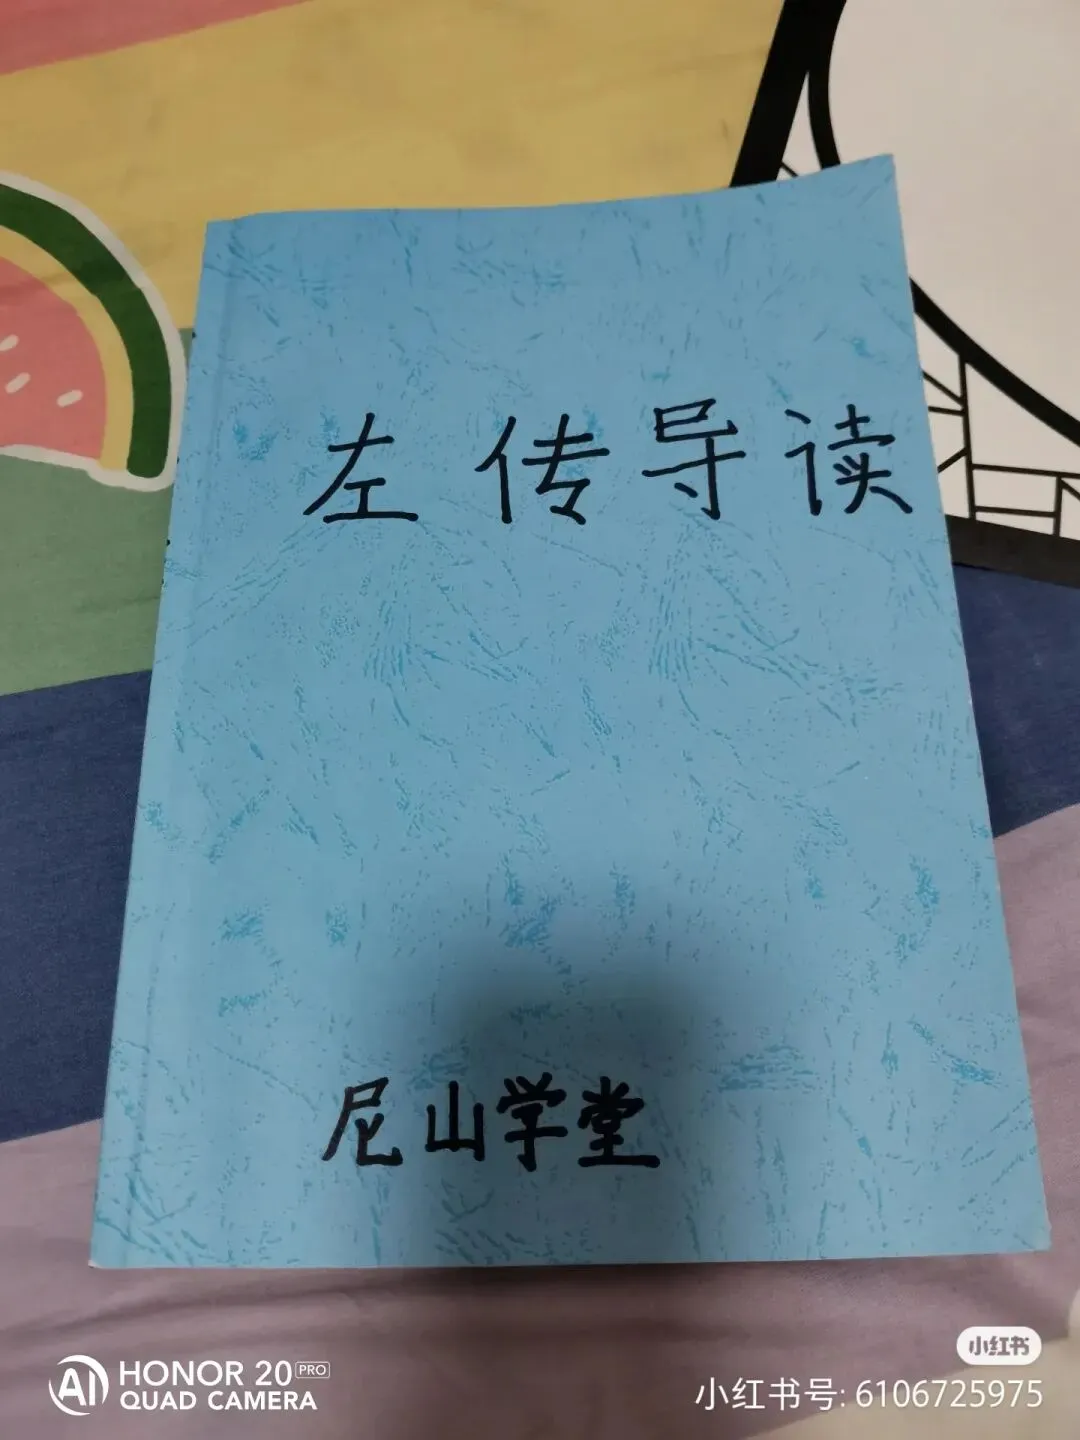 左传导读
尼山学堂
小红书
HONOR 20 PRO
QUAD CAMERA
小红书号: 6106725975